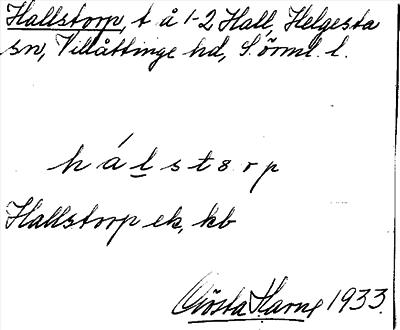 Hallstorp, t å 1-2 Hall, Helgesta
sn, Villåttinge hd, Sörml. l.
hálstorp
Hallstorp ek, kb
Gösta Harne 1933.